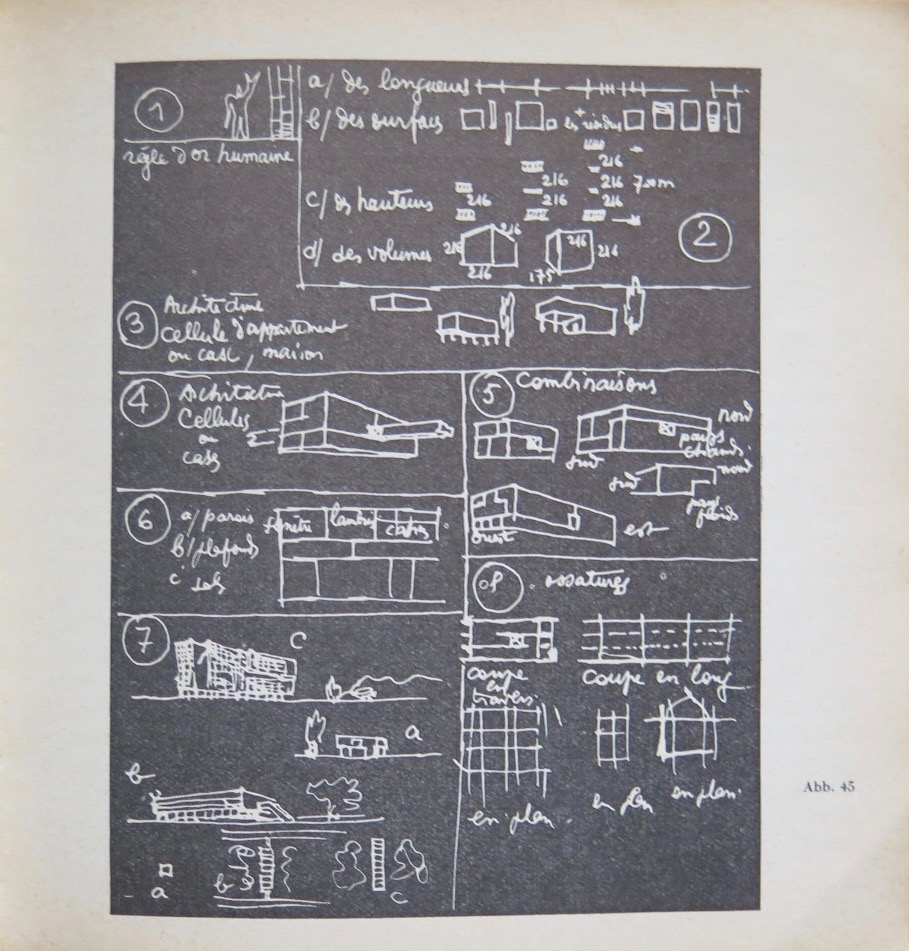 1
règle d'or humaine
a/ des longueurs
b/ des surfaces
les + réindres
216
216
216
216
216
216 700m
216
c/ des hauteurs
2
216
216
216
d/ des volumes
216
216
175
3
Architecture
cellule d'appartement
ou case, maison
4
Architecture
Cellules
ou
cases
5
Combinaisons
nord
pays
chauds
sud
nord
sud
pays
froids
ouest
est
6
a/ parois
b/ plafonds
c sols
fenêtre
lambris
casiers
8
ossatures
7
c
coupe
en
travers.
coupe en long
a
b
en plan.
en plan
en plan.
a
b
c
Abb. 45